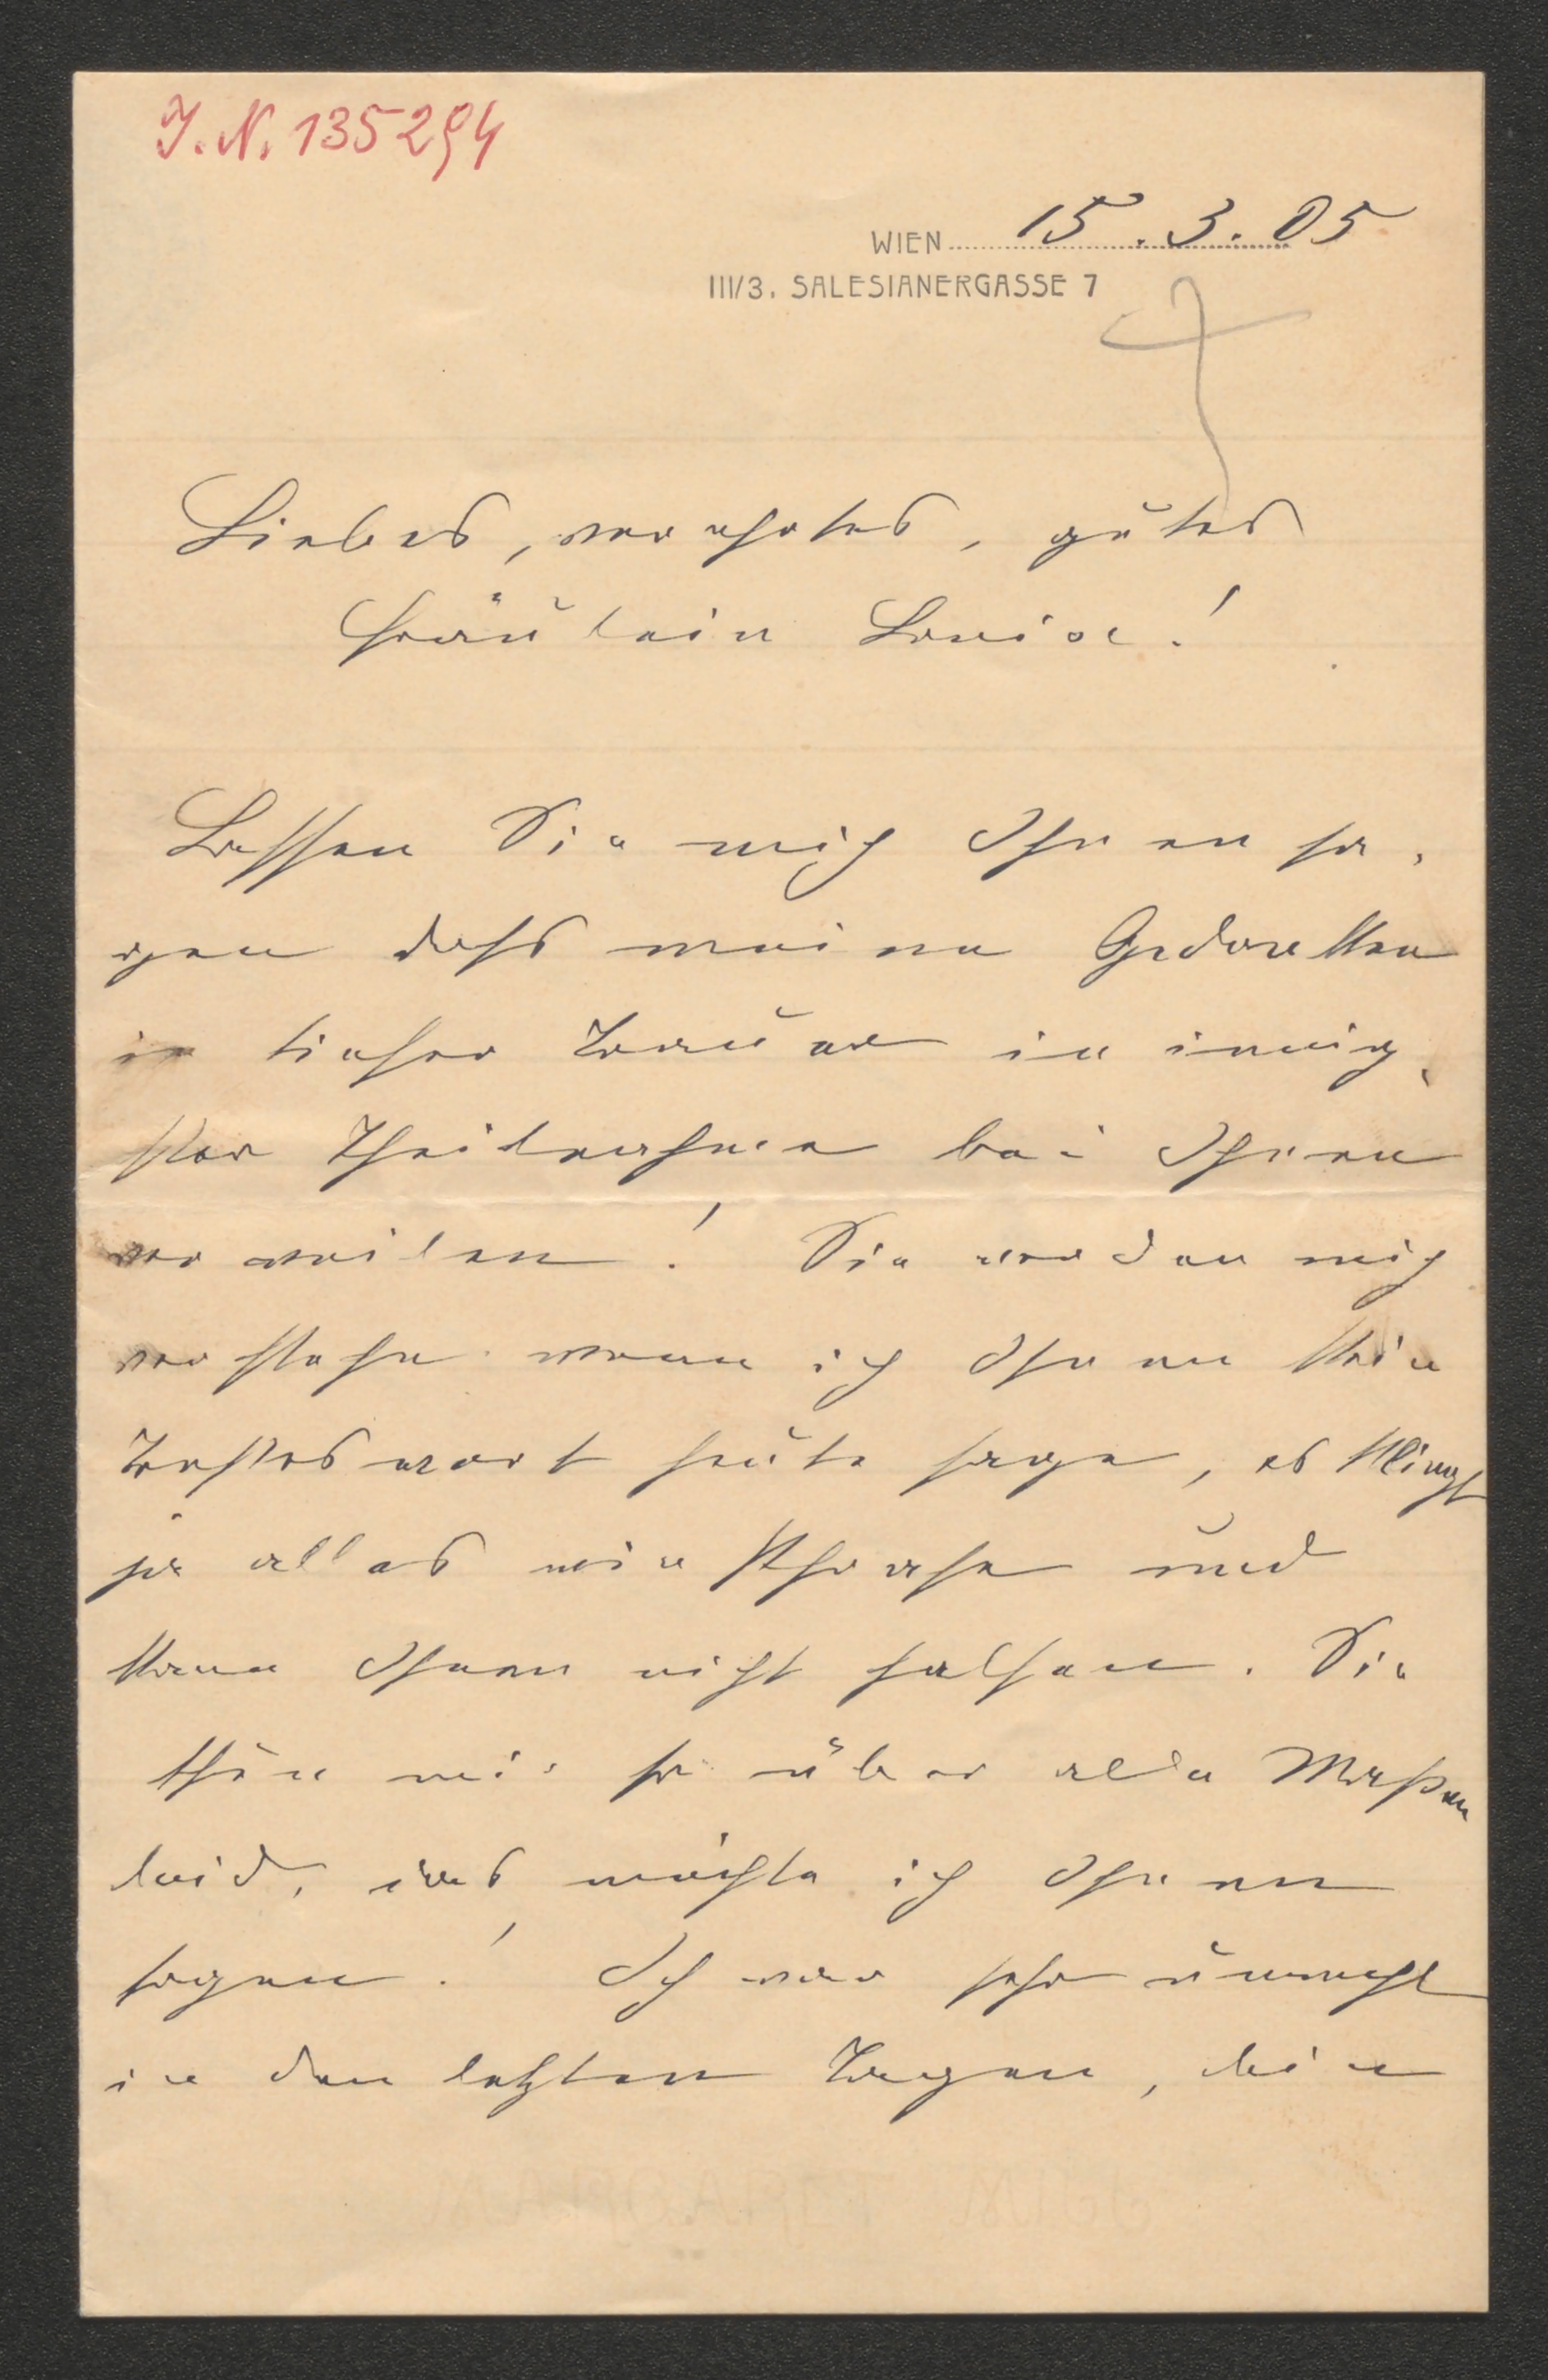 J. N. 135294
WIEN 15.3.05
III/3. SALESIANERGASSE 7
Liebes, verehrtes, gutes
Fräulein Louise!
Lassen Sie mich Ihnen sa-
gen dass meine Gedanken
in tiefer Trauer in innig-
ster Theilnahme bei Ihnen
verweilen! Sie werden mich
verstehn wenn ich Ihnen kein
Trosteswort heute sage, es klingt
ja alles wie Phrase und
kann Ihnen nicht helfen. Sie
thun mir so über alle Maßen
leid, das möchte ich Ihnen
sagen! Ich war sehr unwohl
in den letzten Tagen, bin